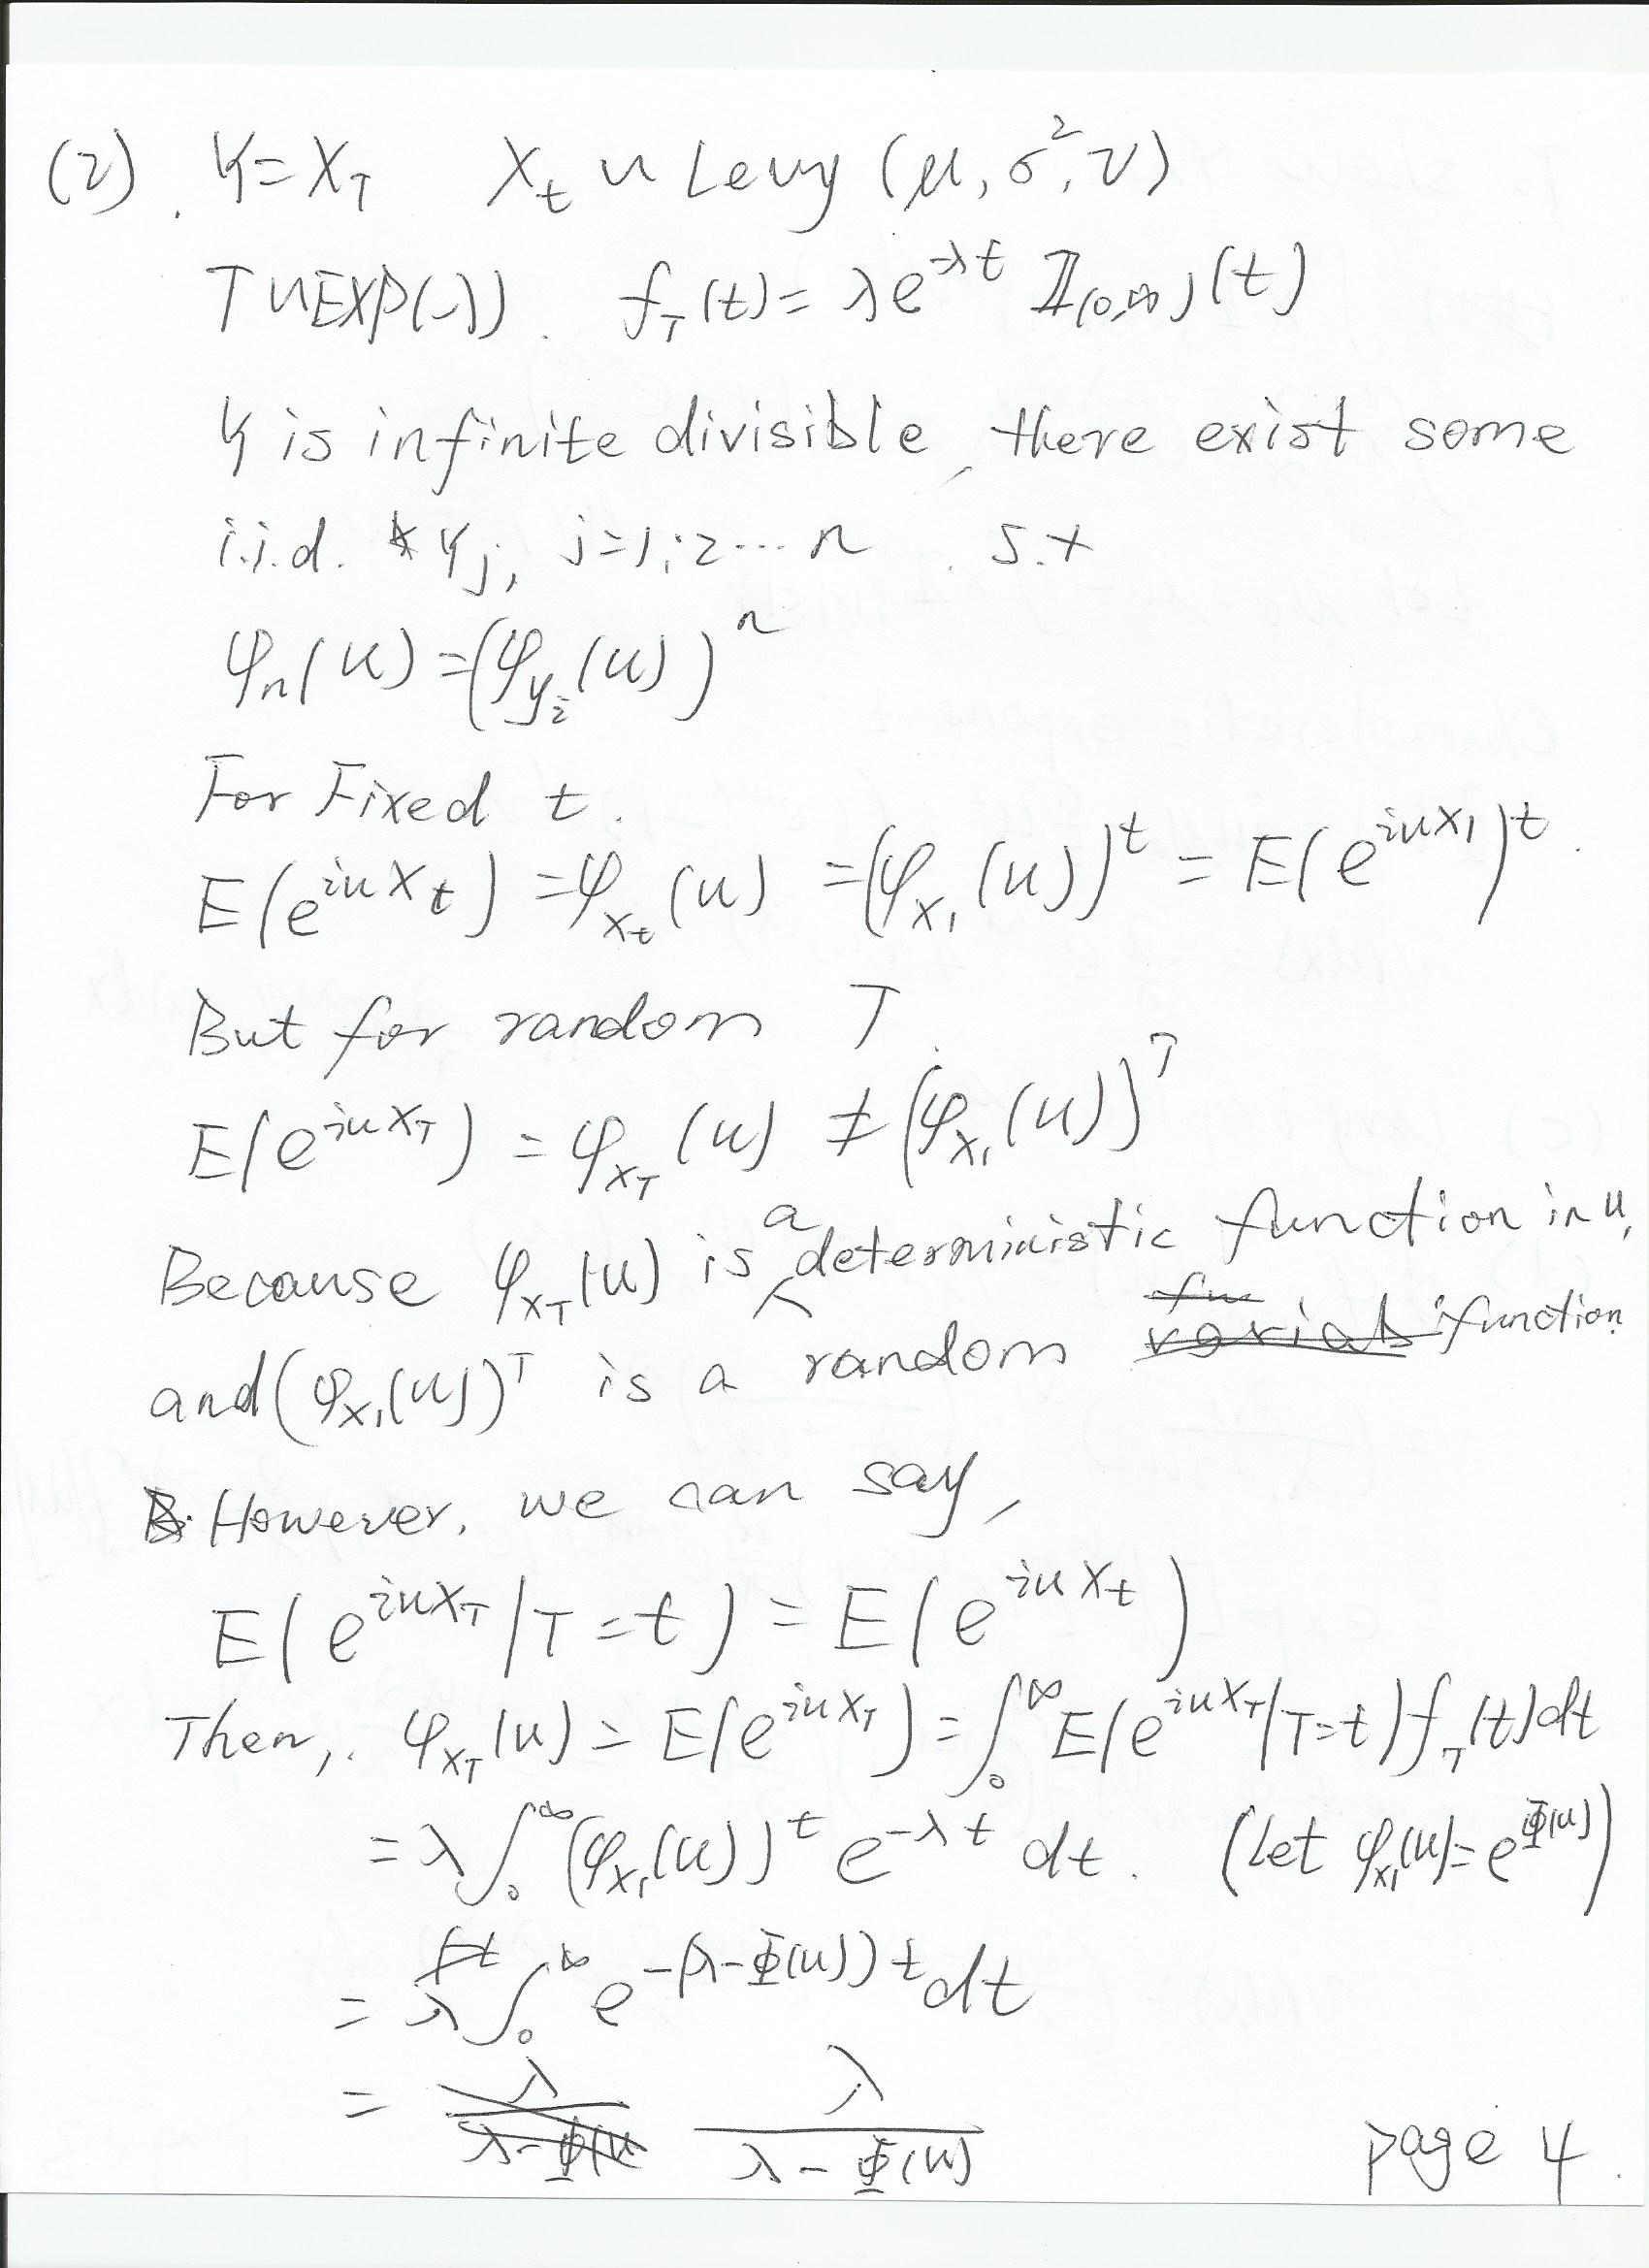 (2). Y=X_T X_t ~ Levy (μ, σ², ν)
T~EXP(λ). f_T(t)=λe^{-λt} 𝟙_{(0,∞)}(t)
Y is infinite divisible, there exist some
i.i.d. Y_j, j=1,2...n. s.t
φ_n(u)=(φ_{y_i}(u))^n
For Fixed t.
E(e^{iuX_t})=φ_{X_t}(u) =(φ_{X_1}(u))^t = E(e^{iuX_1})^t.
But for random T.
E(e^{iuX_T}) = φ_{X_T}(u) ≠ (φ_{X_1}(u))^T
Because φ_{X_T}(u) is a deterministic function in u,
and (φ_{X_1}(u))^T is a random function.
However, we can say,
E(e^{iuX_T}|T=t) = E(e^{iuX_t})
Then, φ_{X_T}(u) = E(e^{iuX_T}) = ∫_0^∞ E(e^{iuX_T}|T=t) f_T(t)dt
= λ∫_0^∞ (φ_{X_1}(u))^t e^{-λt} dt. (Let φ_{X_1}(u)=e^{Φ(u)})
= λ∫_0^∞ e^{-(λ-Φ(u))t} dt
= λ/(λ-Φ(u))
page 4.